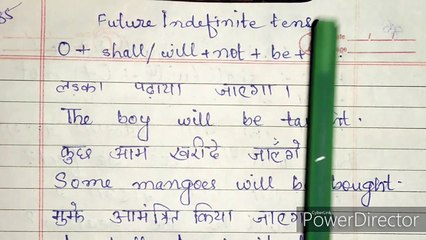 35 Future Indefinite tens
O + shall/will + not + be +
लडका पढाया जाएगा ।
The boy will be ta t.
कुछ आम खरीदे जाएंगे
Some mangoes will be bought.
मुझे आमंत्रित किया जाएगा
PowerDirector